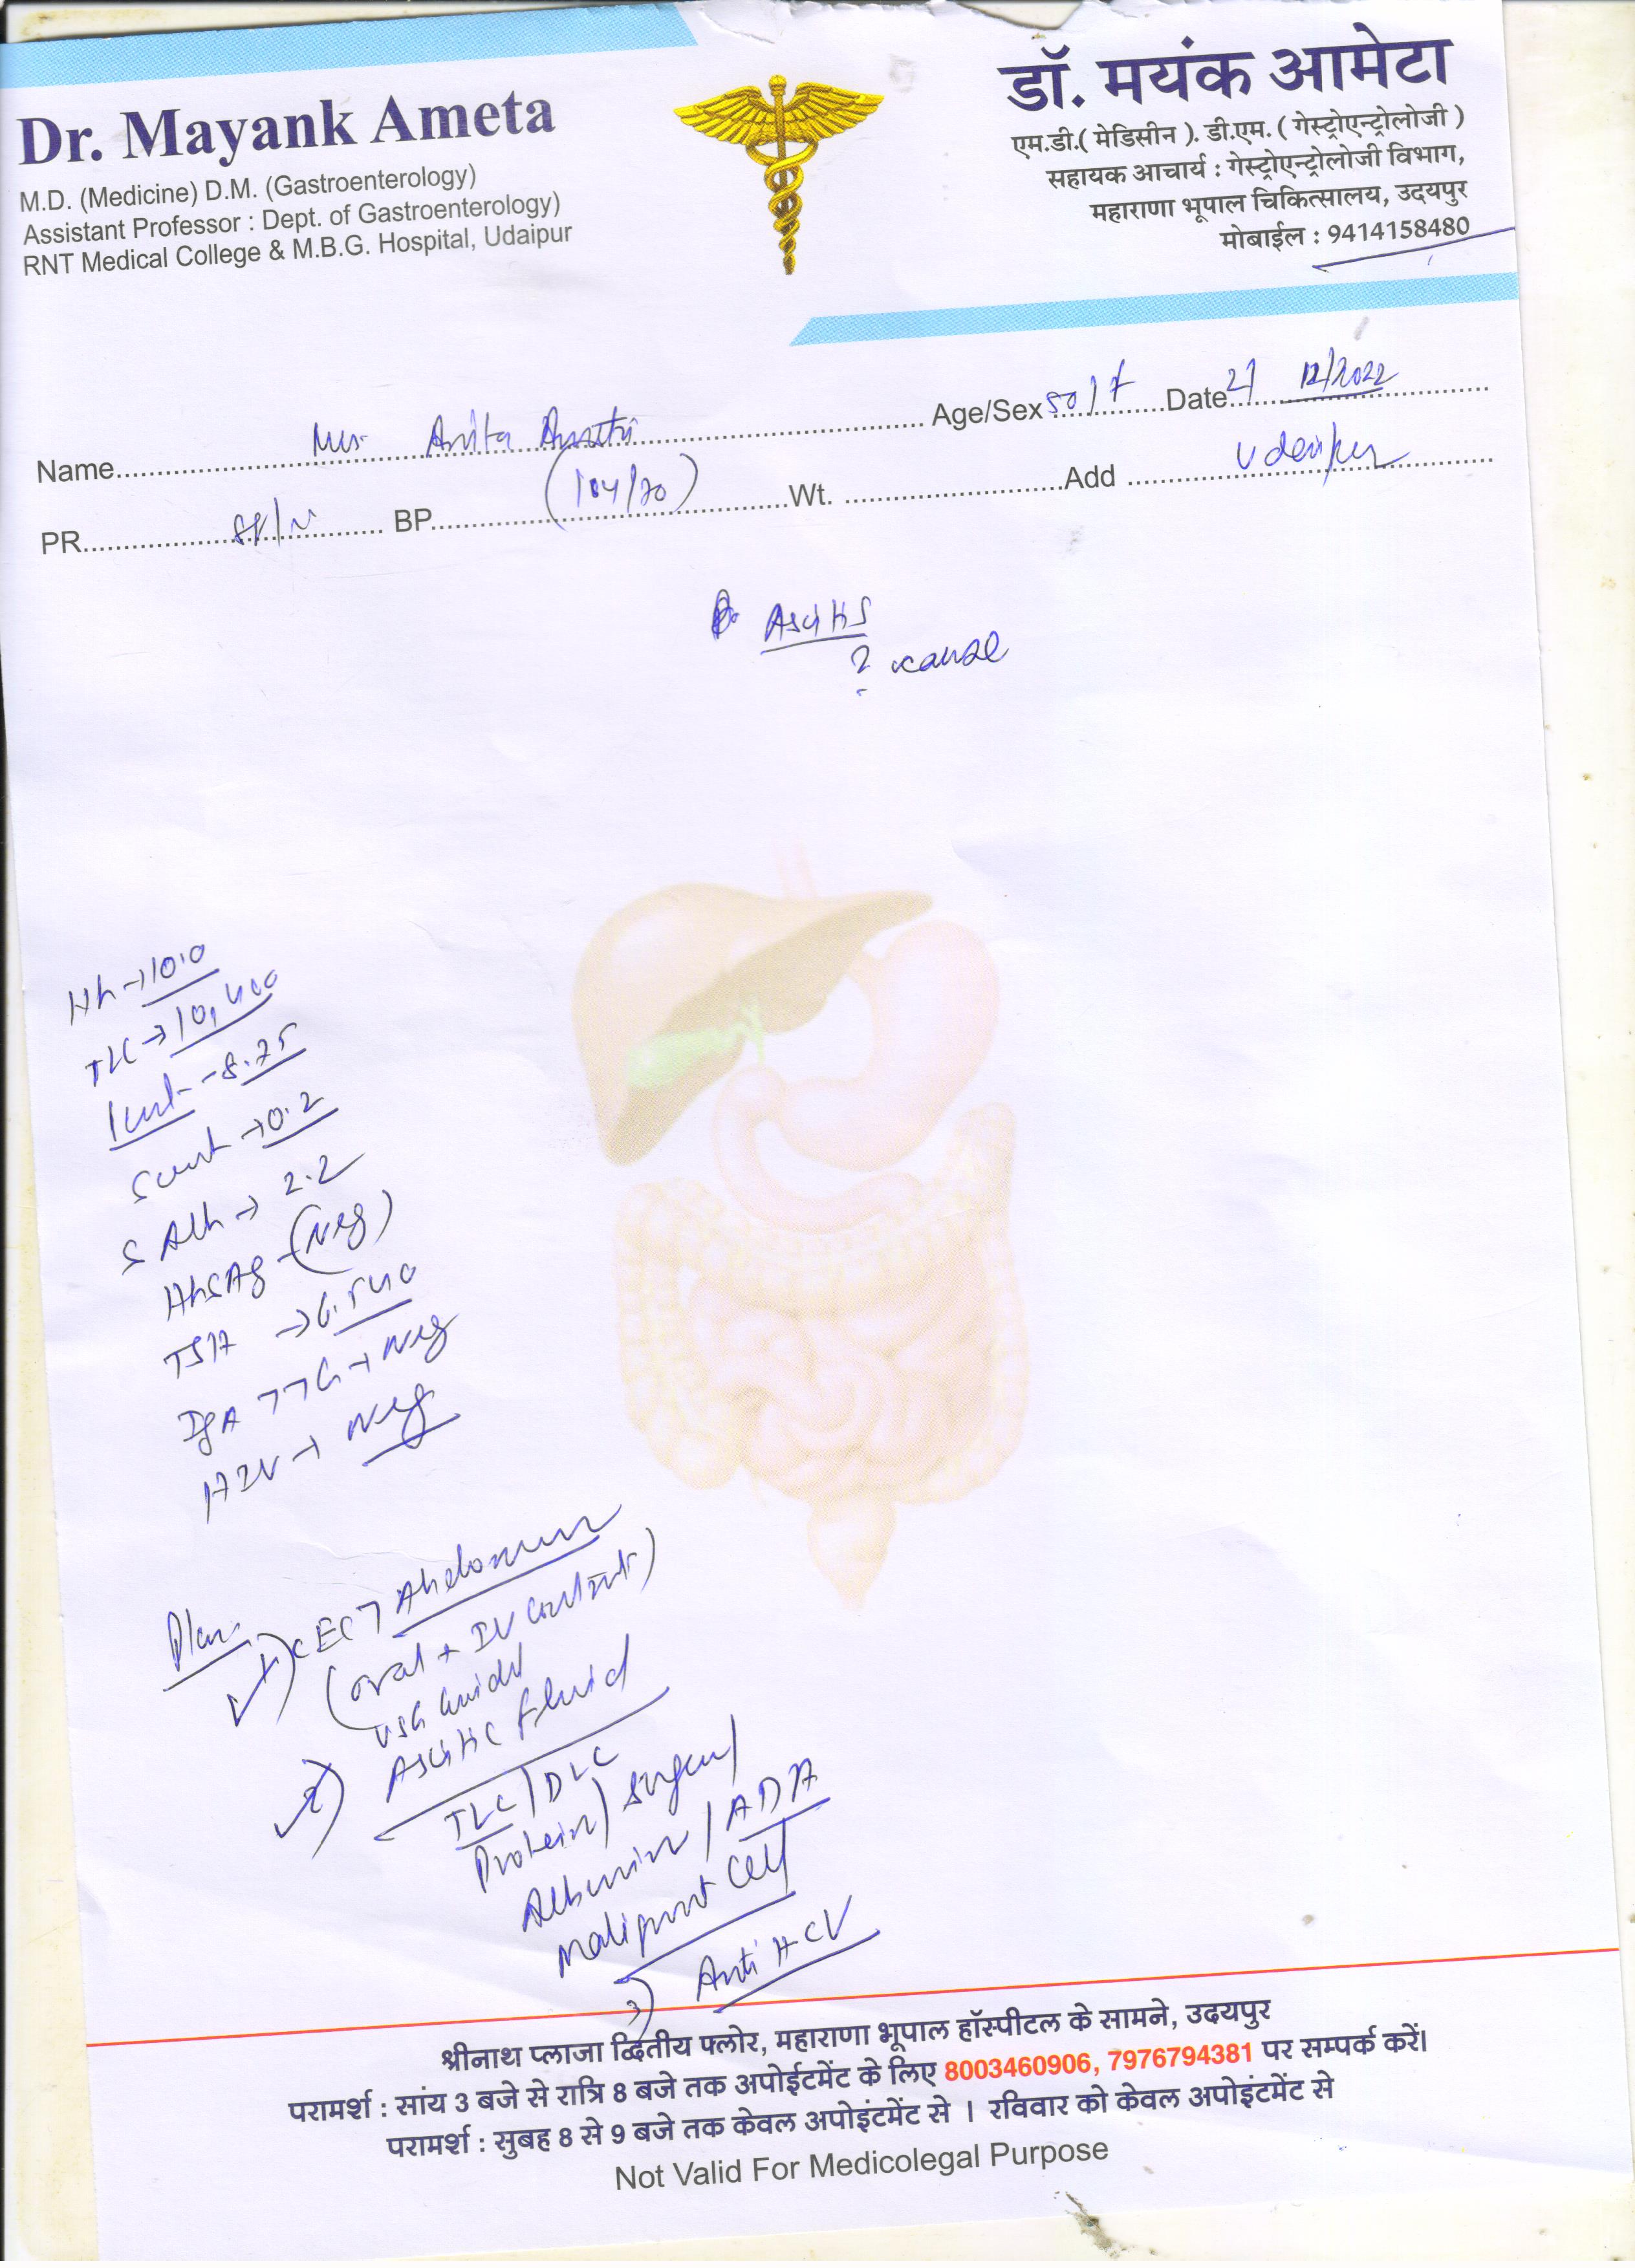 Dr. Mayank Ameta
M.D. (Medicine) D.M. (Gastroenterology)
Assistant Professor : Dept. of Gastroenterology)
RNT Medical College & M.B.G. Hospital, Udaipur
डॉ. मयंक आमेटा
एम.डी.( मेडिसीन ). डी.एम. ( गेस्ट्रोएन्ट्रोलोजी )
सहायक आचार्य : गेस्ट्रोएन्ट्रोलोजी विभाग,
महाराणा भूपाल चिकित्सालय, उदयपुर
मोबाईल : 9414158480
Name Mrs Anita Age/Sex 50/F Date 12/2022
PR BP (104/70) Wt. Add Udaipur
Ascitis
? cause
Hb → 10.0
TLC → 10,400
8.25
→ 0.2
S Alb → 2.2
HbsAg - (Neg)
TSH → 6.540
IgA TTG → Neg
HIV → Neg
Plan
1) CECT Abdomen
(oral + IV contrast)
USG Guided
2) Ascitic fluid
TLC/DLC
Protein/Sugar/
Albumin/ADA
malignant cell
3) Anti HCV
श्रीनाथ प्लाजा द्वितीय फ्लोर, महाराणा भूपाल हॉस्पीटल के सामने, उदयपुर
परामर्श : सांय 3 बजे से रात्रि 8 बजे तक अपोईटमेंट के लिए 8003460906, 7976794381 पर सम्पर्क करें।
परामर्श : सुबह 8 से 9 बजे तक केवल अपोइंटमेंट से । रविवार को केवल अपोइंटमेंट से
Not Valid For Medicolegal Purpose